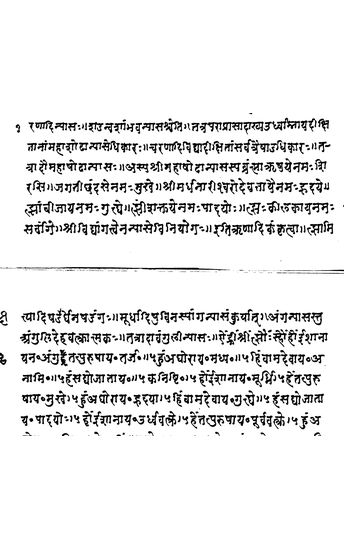 १ रणादिन्यासः॥शउन्वशांभवन्यासश्चेति॥तत्रपराप्रासादाख्यउर्ध्वाम्नायदीक्षि
तानांमहाषोढान्यासेधिकारः॥चरणादिविद्यादीक्षितांसर्वत्रेषाउधिकारः॥त
त्रादौमहाषोढान्यासः॥अस्यश्रीमहाषोढान्यासस्यब्रह्माऋषयेनमः शि
रसि॥जगतीछंदसेनमः मुखे॥श्रीमर्धनारीश्वरोदेवतायैनमः हृदये॥
बीजायनमः गुह्ये॥शक्तयेनमः पादयोः॥कीलकायनमः
सर्वांगे॥श्रीविद्यांगत्वेनन्यासेविनियोगः॥इतिऋष्णादिकंकृत्वा॥
त्यादिषडंर्घेनषडंगः॥मूर्धादिषुविनस्पांगन्यासंकुर्यात्॥अंगन्यासस्तु
अंगुलिदेहवक्त्रात्मकः॥तत्रादावंगुलीन्यासः॥ऐंह्रींश्रीं ईशाना
य॰अंगुष्ठ तत्पुरुषाय॰तर्ज॰॥५हुंअघोराय॰मध्य॰॥५हिंवामदेवाय॰अ
नामि॰॥५हंसद्योजाताय॰॥कनिष्ठि॰॥५होंईशानाय॰मूर्ध्नि॥५हेंतत्पुरु
षाय॰मुखे॥५हुंअघोराय॰हृदया॥५हिंवामदेवाय॰गुह्ये॥५हंसद्योजाता
य॰पादयोः॥५होंईशानाय॰उर्ध्ववक्त्रे॥५हेंतत्पुरुषाय॰पूर्ववक्त्रे॥५हुंअ